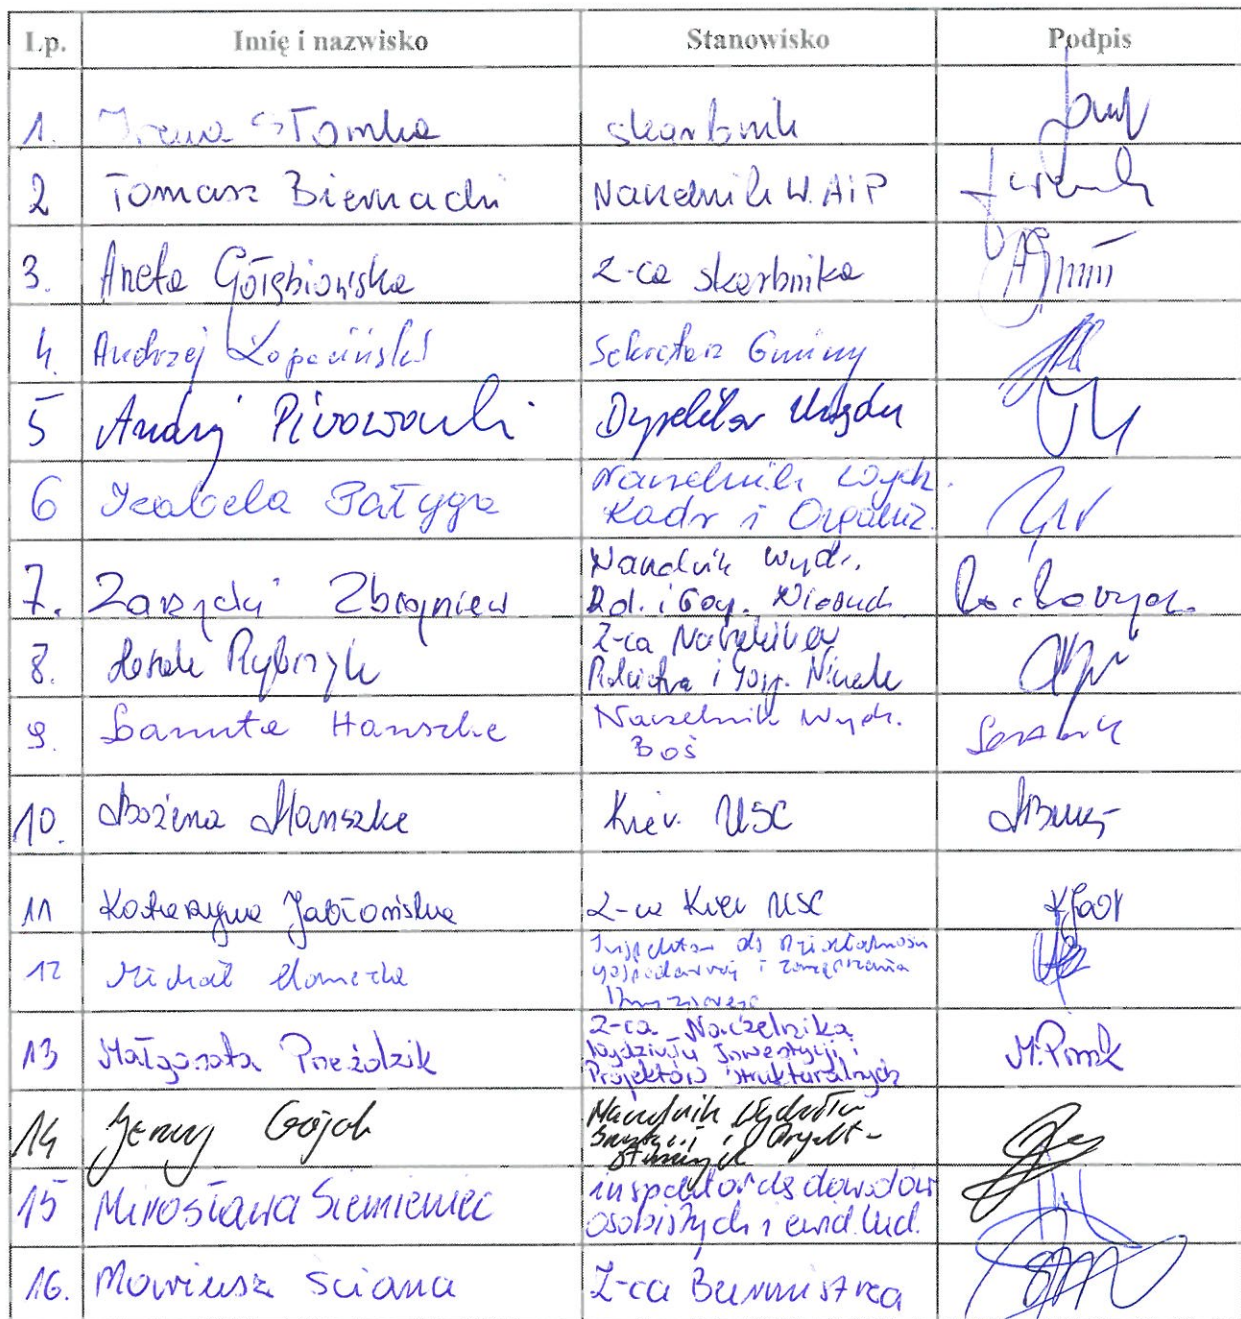 Lp. Imię i nazwisko Stanowisko Podpis
1. Irena Słomka skarbnik
2 Tomasz Biernacki Naczelnik W. AiP
3. Aneta Gołębiowska z-ca skarbnika
4. Andrzej Łopaciński Sekretarz Gminy
5 Andrzej Piwowarski Dyrektor Urzędu
6 Izabela Pałyga Naczelnik Wydz.
Kadr i Organiz.
7. Zarzycki Zbigniew Naczelnik Wydz.
Rol. i Gosp. Nieruch.
8. Rybczyk Z-ca Naczelnika
Rolnictwa i Gosp. Nieruch
9. Danuta Hanszke Naczelnik Wydz.
BOŚ
10. Bożena Manszke Kier. USC
11 Katarzyna Jabłońska z-ca Kier USC
12 Michał Inspektor ds działalności
gospodarczej i zarządzania
13 Małgorzata Prieżdzik Z-ca Naczelnika
Wydziału Inwestycji i
Projektów strukturalnych
M.
14 Jerzy Gójch Naczelnik Wydziału
15 Mirosława Siemieniec inspektor ds dowodów
osobistych i ewid. lud.
16. Mariusz Ściana Z-ca Burmistrza